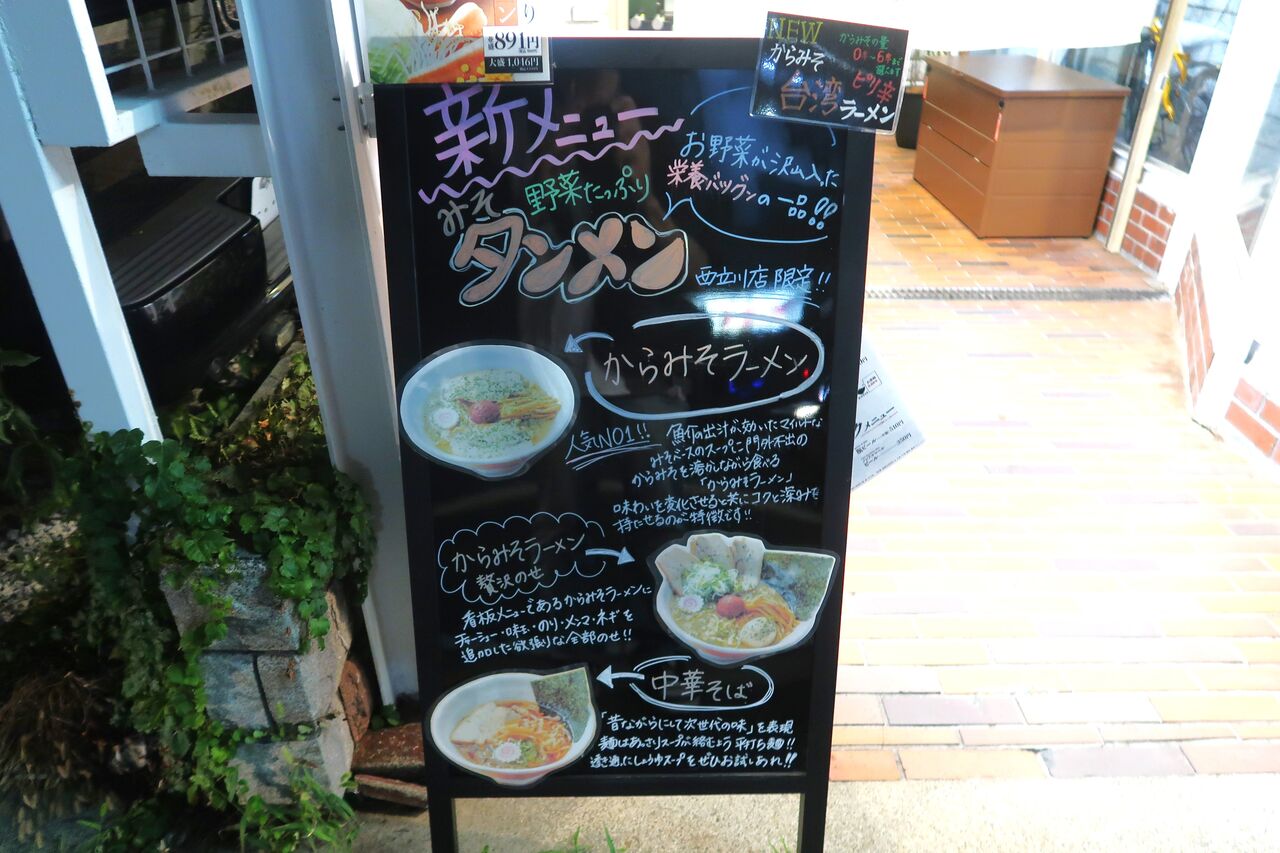 891円
大盛 1,046円
NEW
からみその量
からみそ
0辛~6辛まで
選べます
ピリ辛
台湾
ラーメン
新メニュー
お野菜が沢山入った
栄養バツグンの一品!!
みそ
野菜たっぷり
タンメン
西立川店限定!!
からみそラーメン
人気NO1!!
魚介の出汁が効いたマイルドな
みそベースのスープに門外不出の
からみそを溶かしながら食べる
「からみそラーメン」
味わいを変化させると共にコクと深みを
持たせるのが特徴です!!
からみそラーメン
贅沢のせ
看板メニューであるからみそラーメンに
チャーシュー・味玉・のり・メンマ・ネギを
追加した欲張りな全部のせ!!
中華そば
「昔ながらにして次世代の味」を表現
麺はあっさりスープが絡むよう平打ち麺!!
透き通ったしょうゆスープをぜひお試しあれ!!